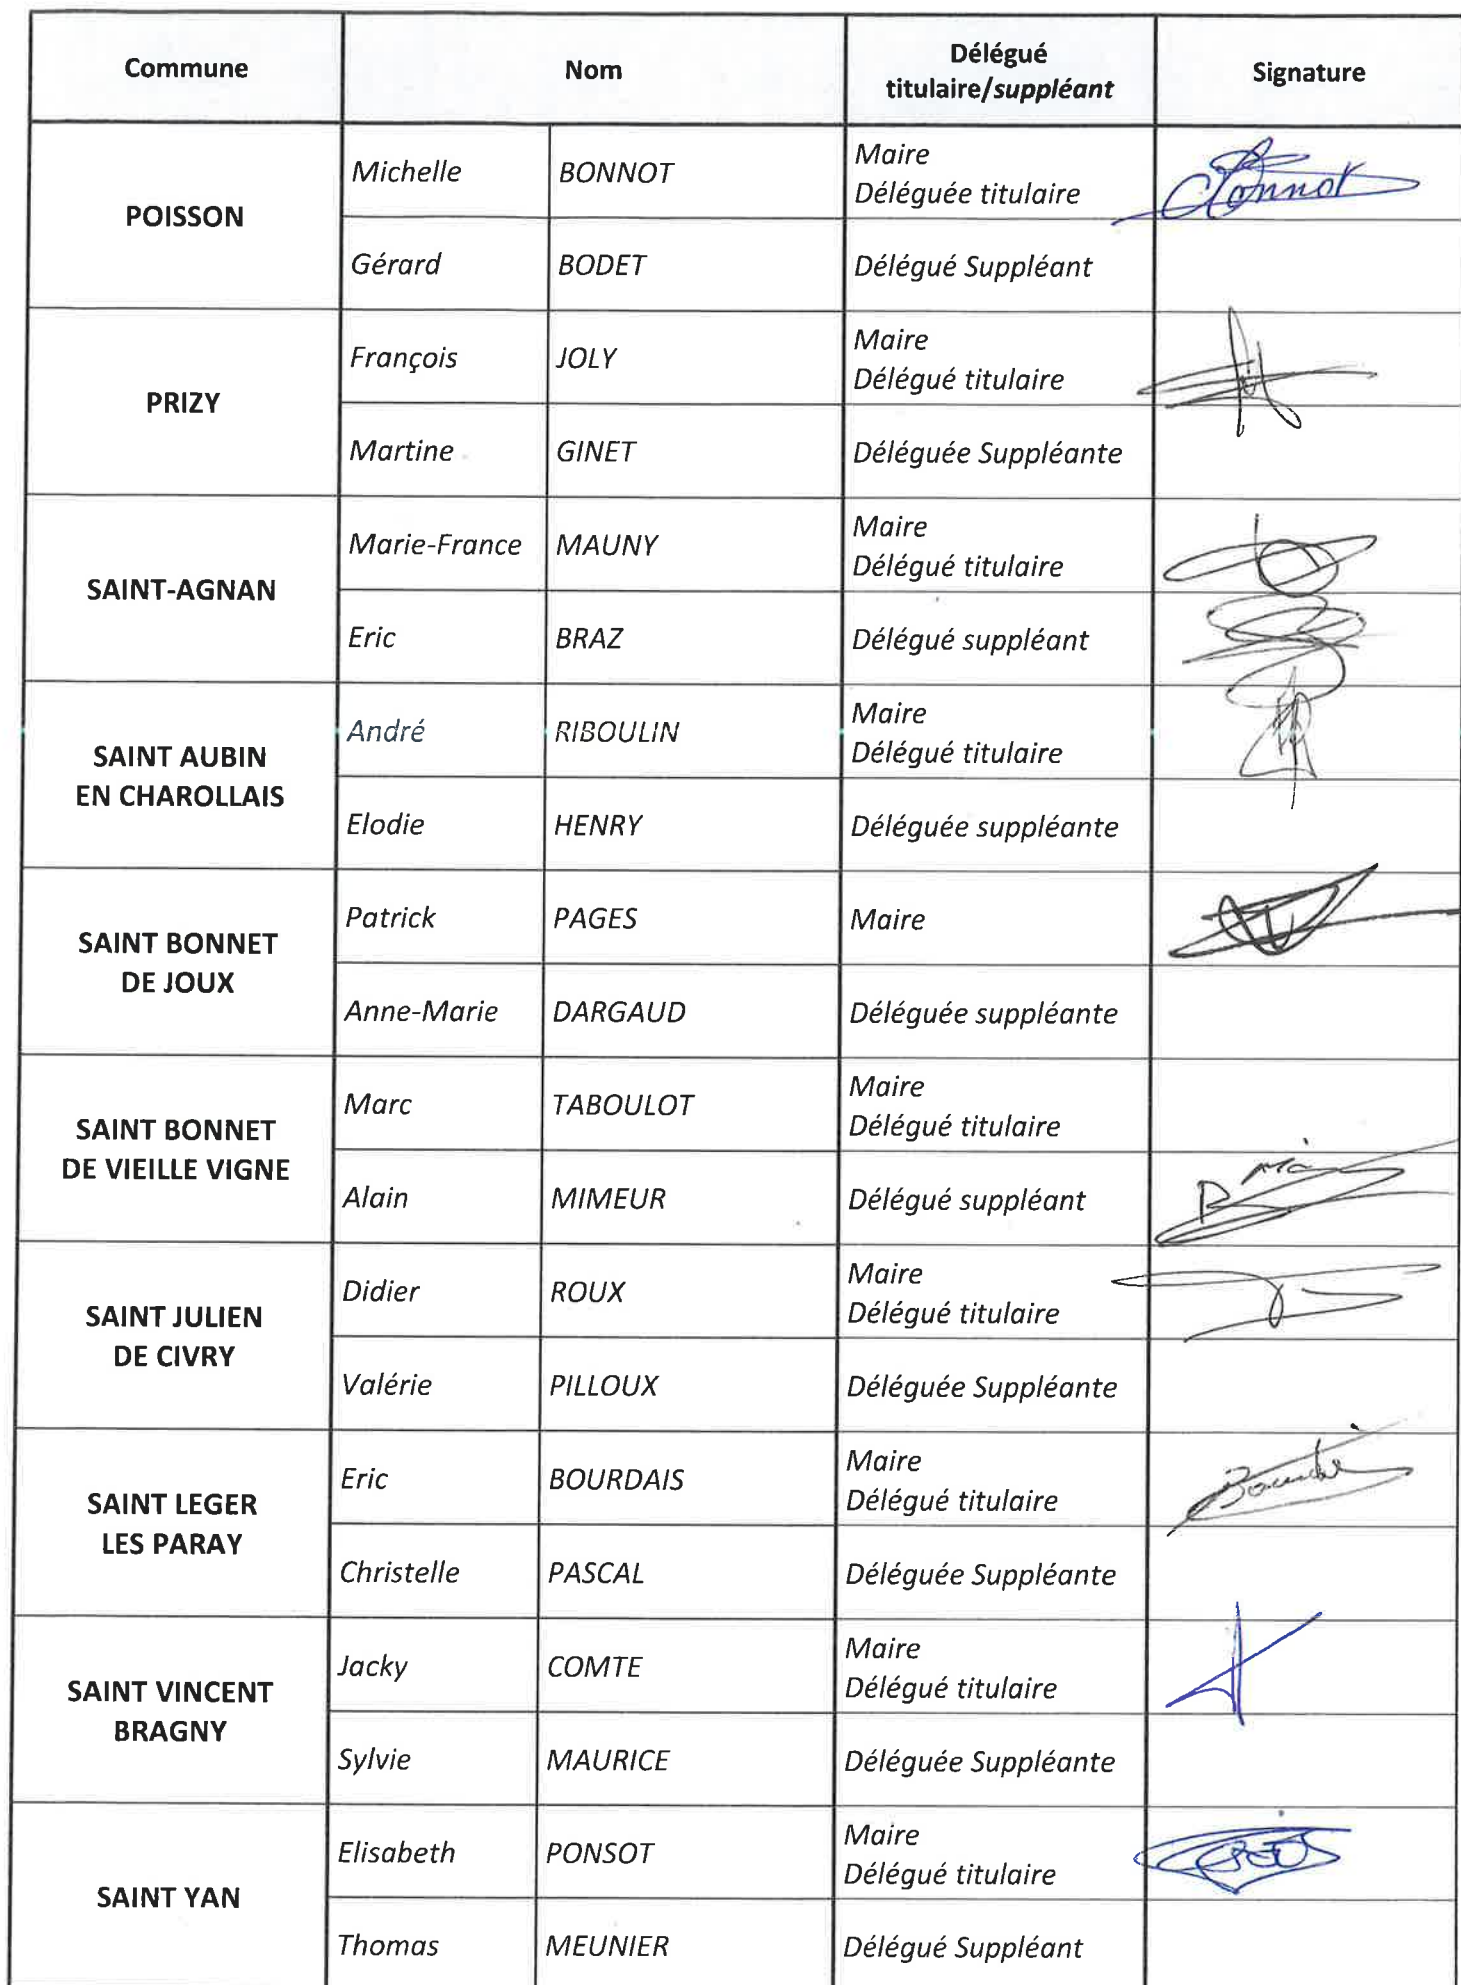 Commune Nom Délégué titulaire/suppléant Signature
POISSON
Michelle BONNOT Maire
Déléguée titulaire Bonnot
Gérard BODET Délégué Suppléant
PRIZY
François JOLY Maire
Délégué titulaire
Martine GINET Déléguée Suppléante
SAINT-AGNAN
Marie-France MAUNY Maire
Délégué titulaire
Eric BRAZ Délégué suppléant
SAINT AUBIN
EN CHAROLLAIS
André RIBOULIN Maire
Délégué titulaire
Elodie HENRY Déléguée suppléante
SAINT BONNET
DE JOUX
Patrick PAGES Maire
Anne-Marie DARGAUD Déléguée suppléante
SAINT BONNET
DE VIEILLE VIGNE
Marc TABOULOT Maire
Délégué titulaire
Alain MIMEUR Délégué suppléant
SAINT JULIEN
DE CIVRY
Didier ROUX Maire
Délégué titulaire
Valérie PILLOUX Déléguée Suppléante
SAINT LEGER
LES PARAY
Eric BOURDAIS Maire
Délégué titulaire
Christelle PASCAL Déléguée Suppléante
SAINT VINCENT
BRAGNY
Jacky COMTE Maire
Délégué titulaire
Sylvie MAURICE Déléguée Suppléante
SAINT YAN
Elisabeth PONSOT Maire
Délégué titulaire
Thomas MEUNIER Délégué Suppléant